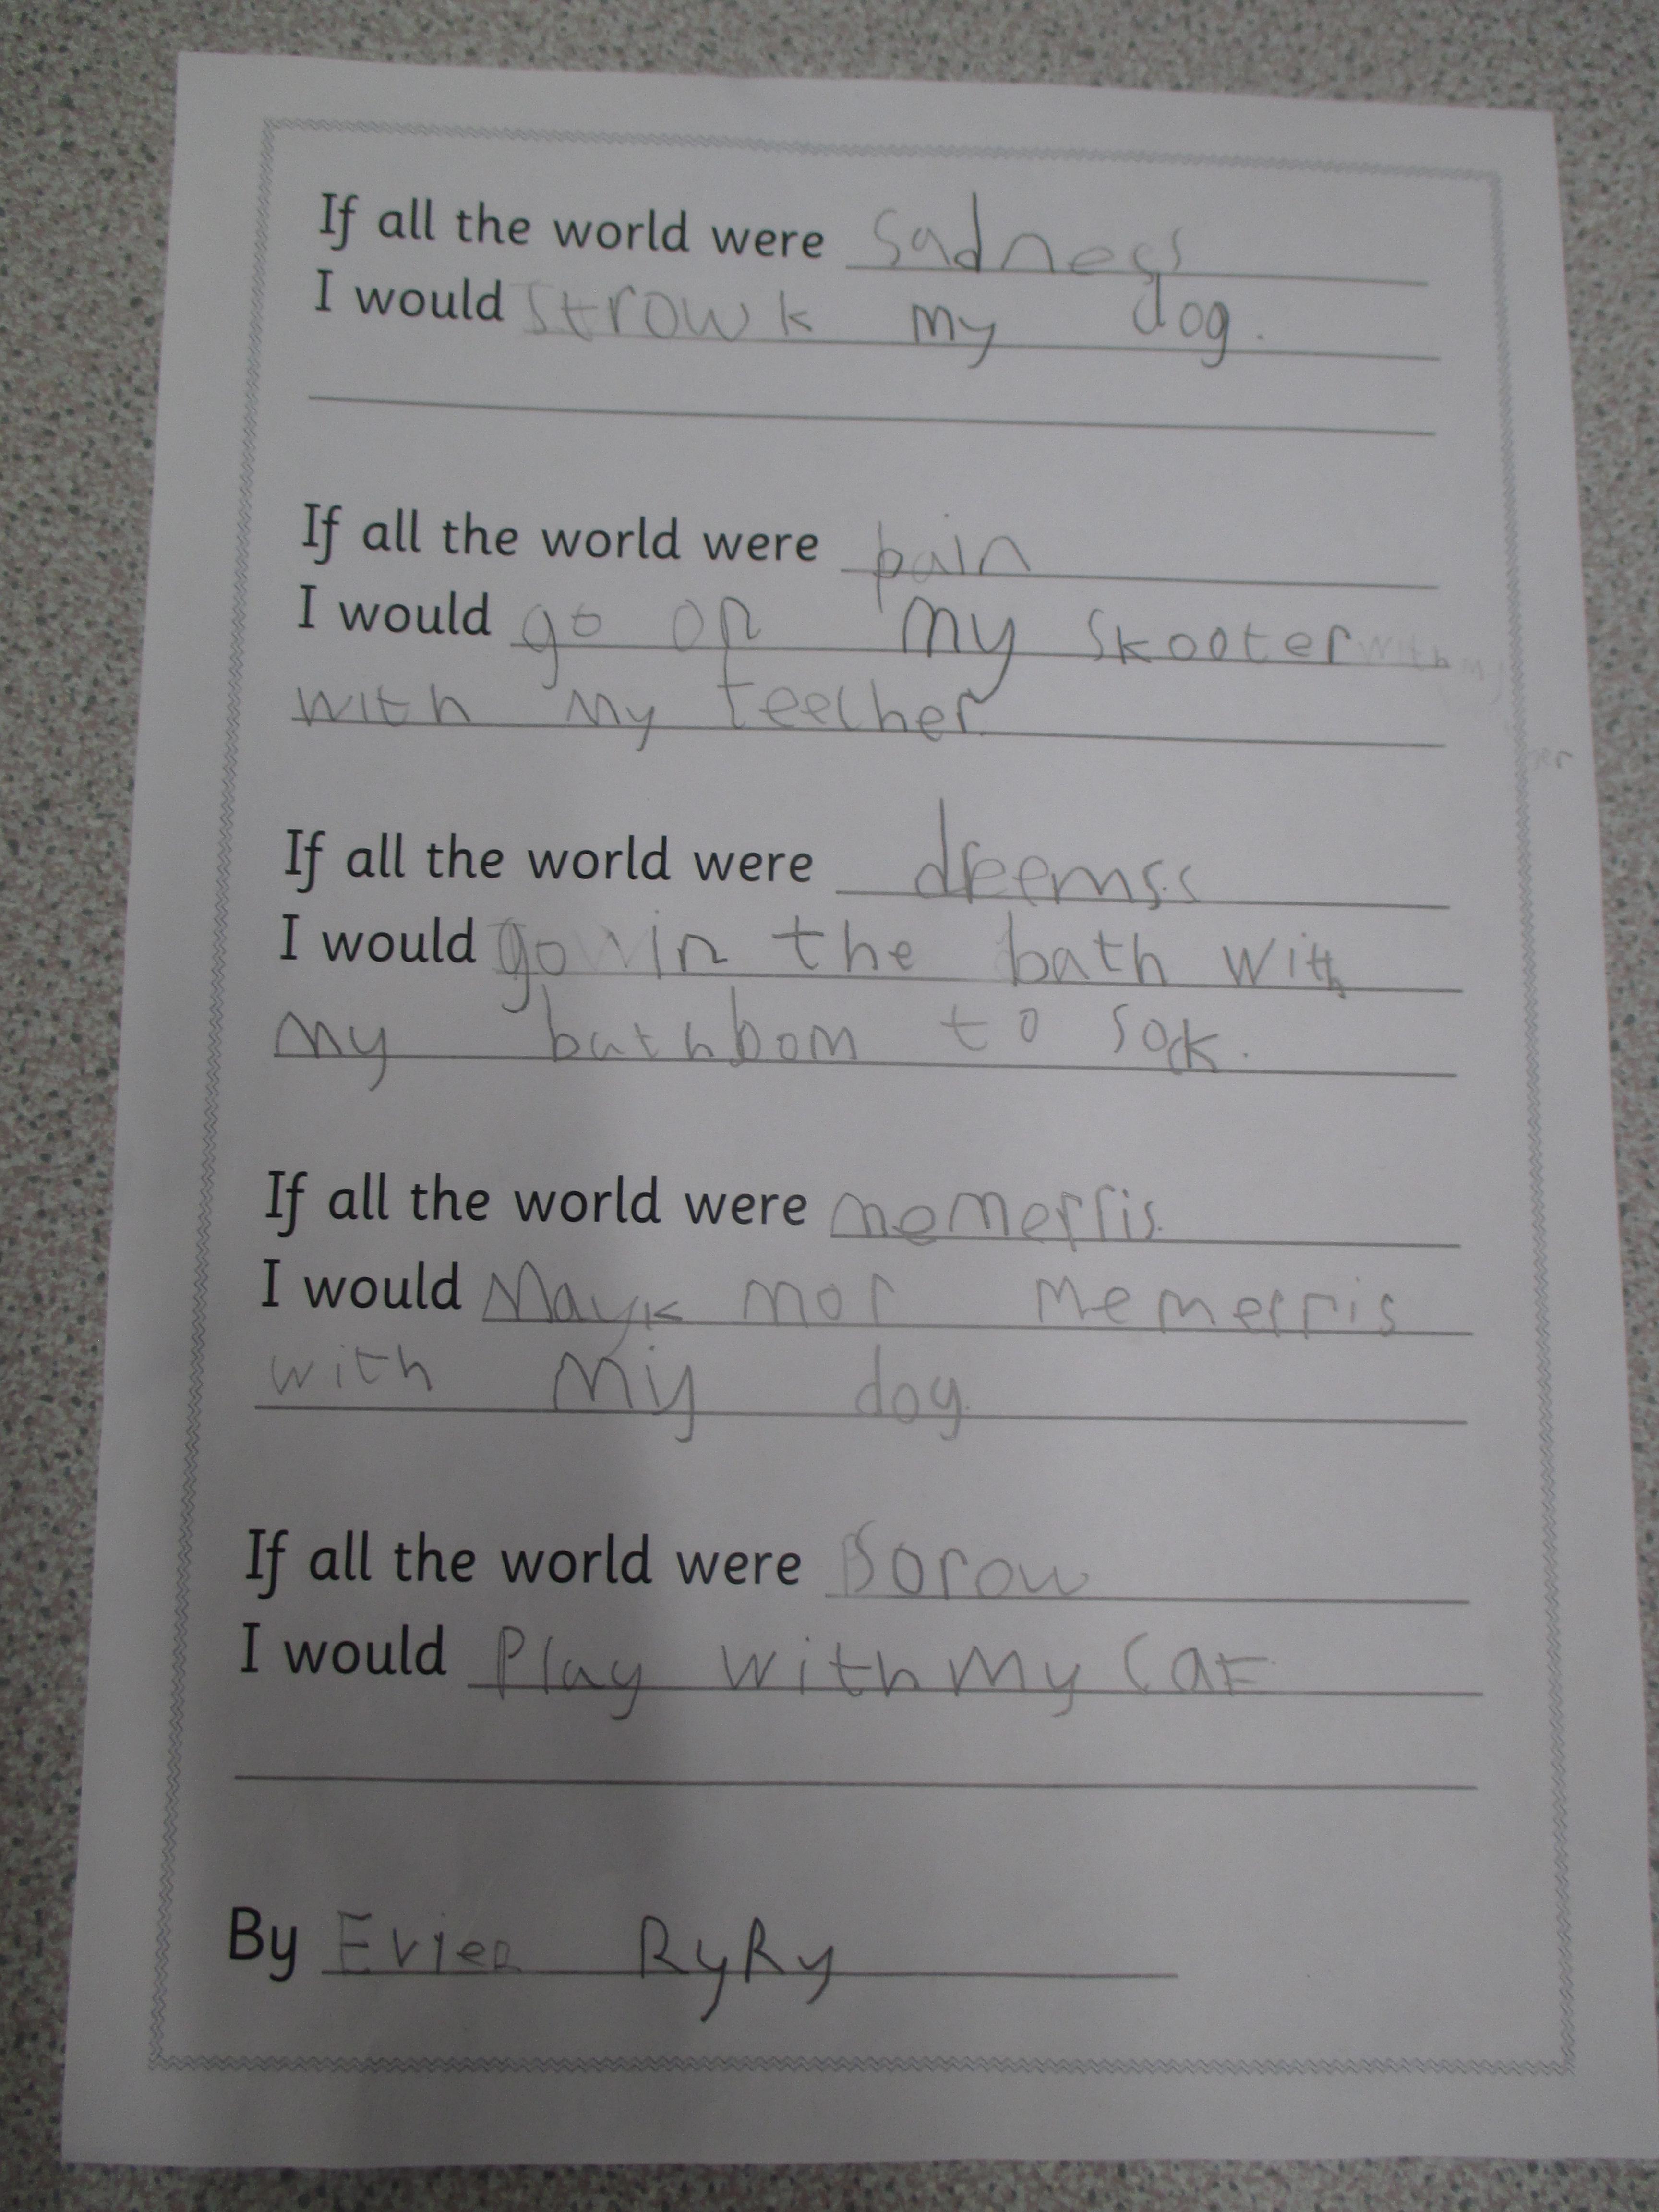 If all the world were sadness
I would strowk my dog.
If all the world were pain
I would go on my skooter
with my teecher
If all the world were dreemss
I would go in the bath with
my bathbom to sock.
If all the world were memerris.
I would Mayk mor memerris
with miy dog.
If all the world were Sorow
I would Play with my Cat
By RyRy